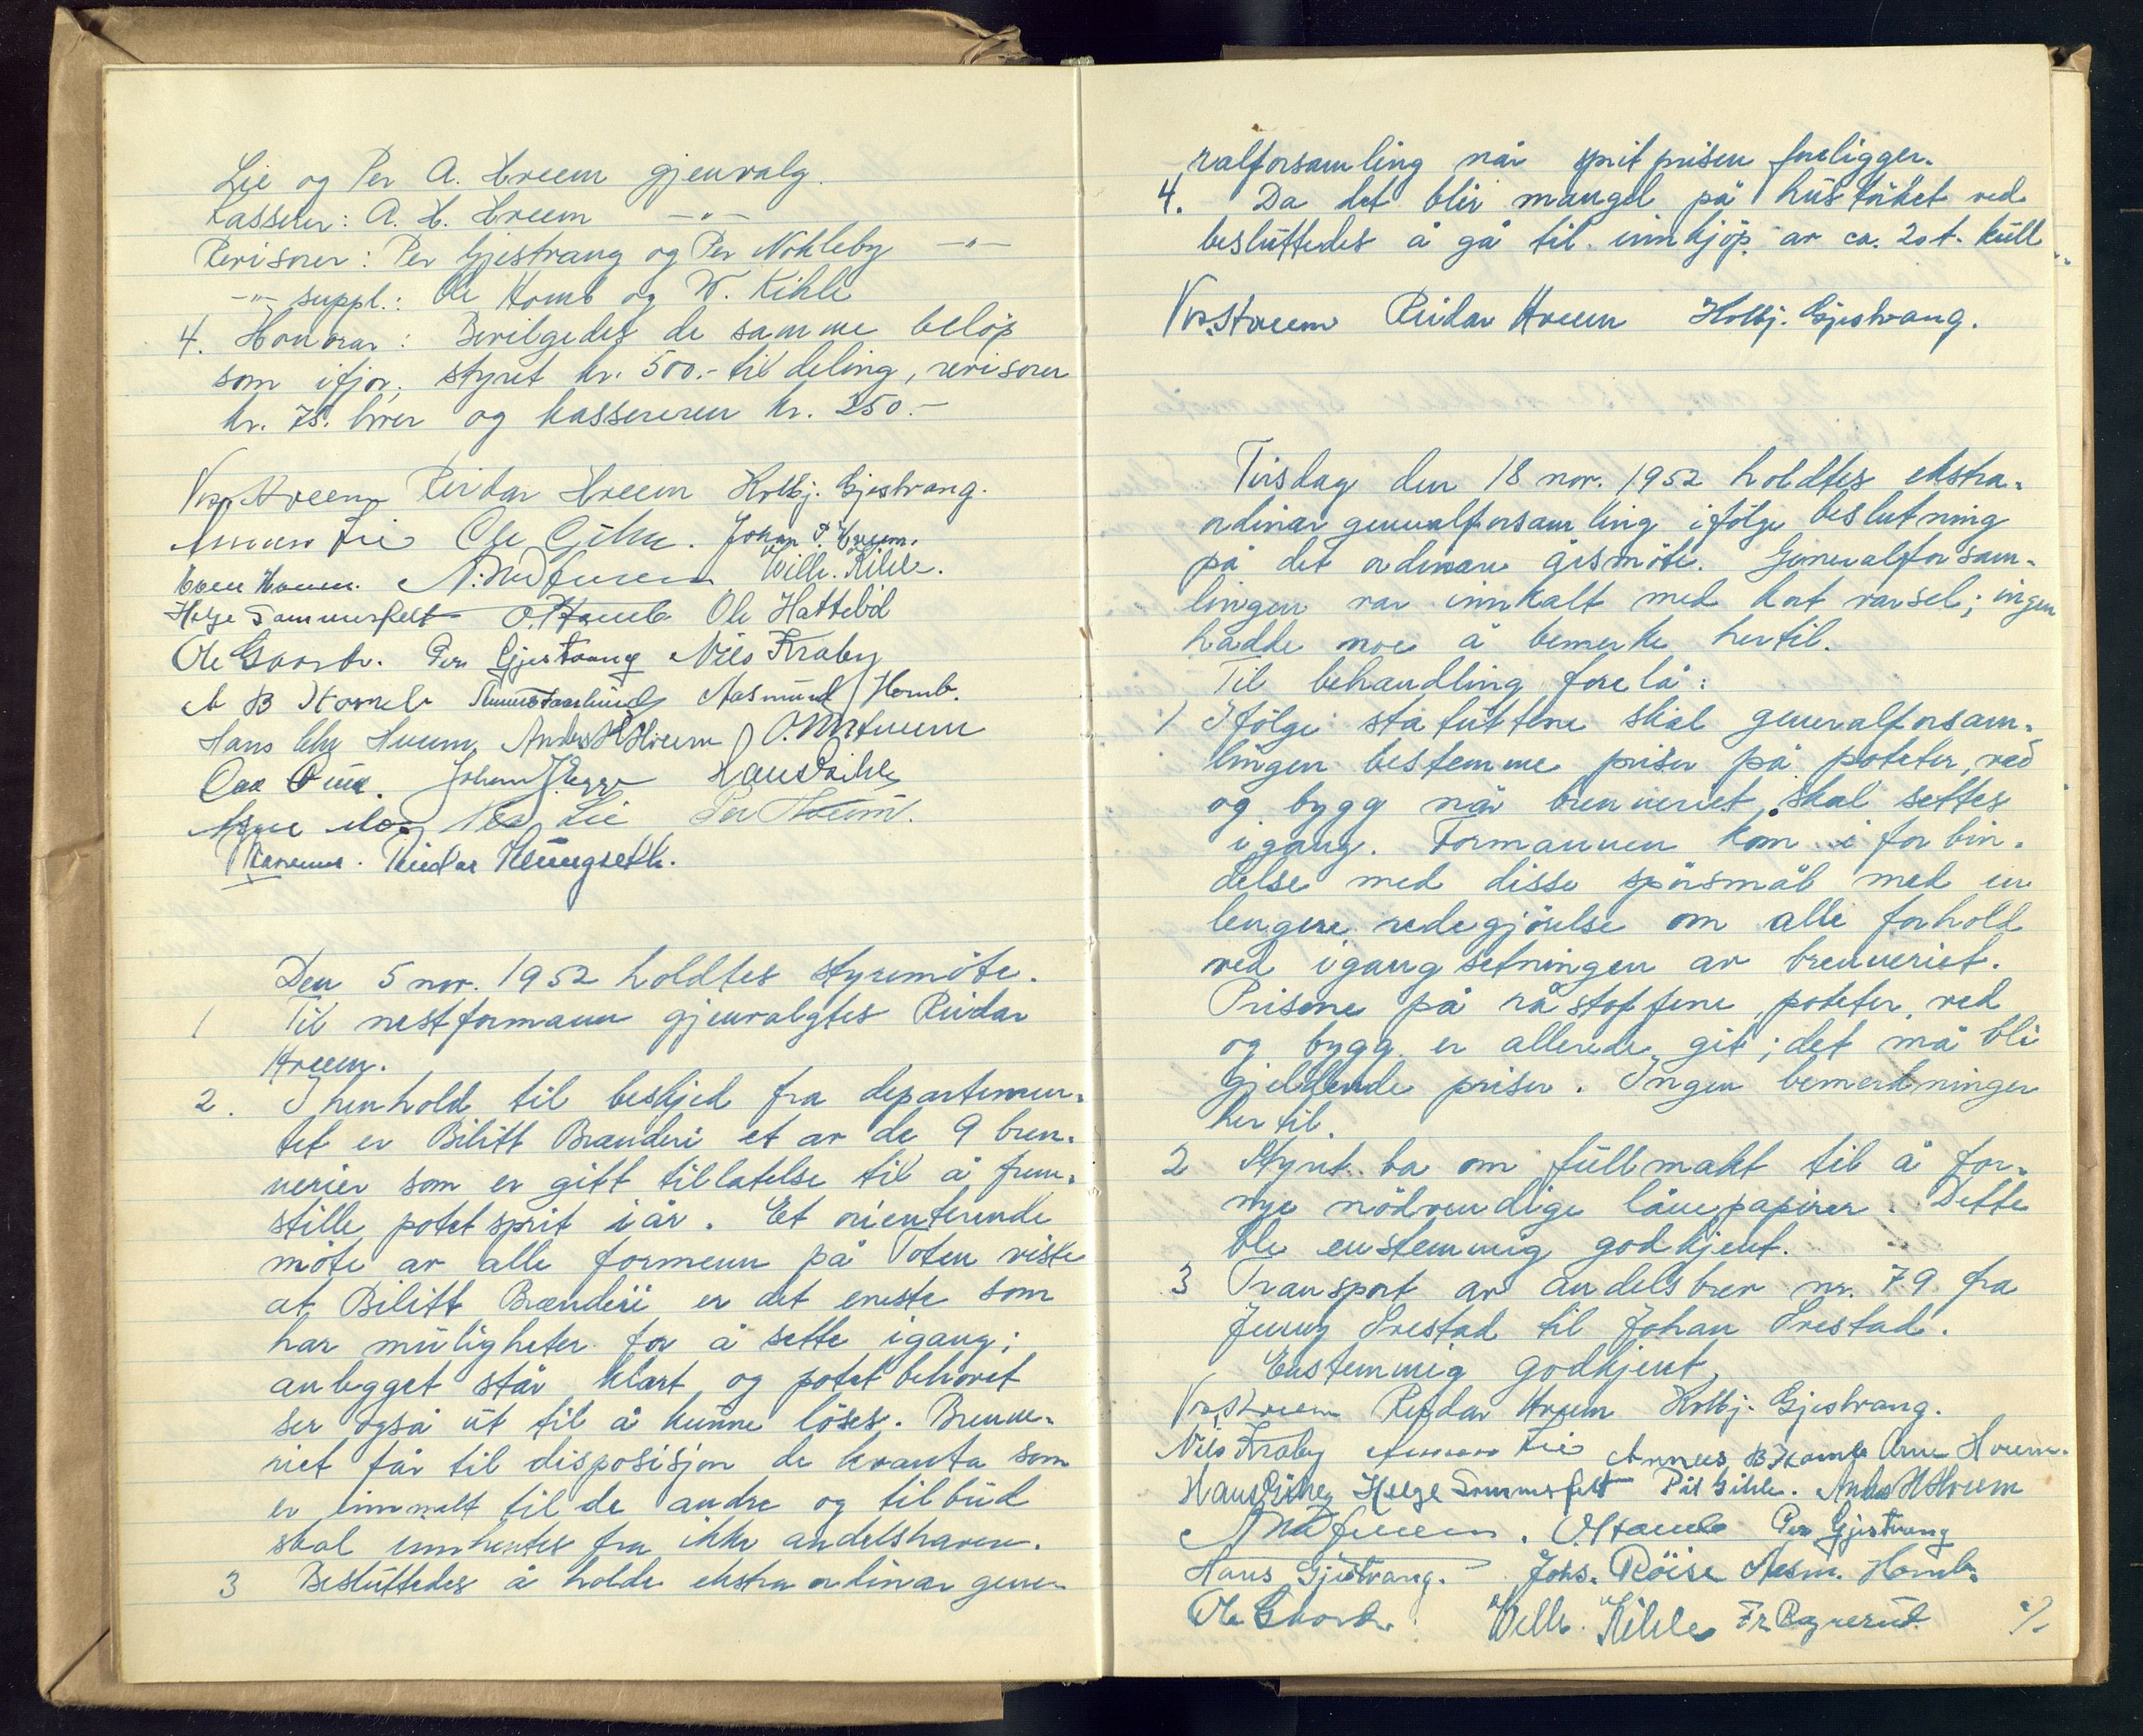 Lie og Per A. Hveem gjenvalg.
Kasserer: A. H. Hveem —"—
Revisorer: Per Gjestvang og Per Nøkleby —"—
—"— suppl.: Ole Homb og W. Kihle
4. Honorar: Bevilgedes de samme beløp
som ifjor; styret kr. 500.- til deling, revisorer
kr. 75. hver og kassereren kr. 250.-
Hveem Reidar Hveem Kolbj. Gjestvang.
Lie Ole Gihle. Johan P. Hveem.
Wilh. Kihle.
Helge Sommerfelt O. Homb Ole Hattebøl
Ole Gaarder. Per Gjestvang Nils Kraby
A B Homb Aasmund Homb.
Hans Chr Hveem, Anders H Hveem
Hans Kihle
Lie Per Hveem.
Reidar Klungseth.
Den 5 nov. 1952 holdtes styremöte.
1 Til nestformann gjenvalgtes Reidar
Hveem.
2. I henhold til beskjed fra departemen-
tet er Bilitt Brænderi et av de 9 bren-
nerier som er gitt tillatelse til å frem-
stille potetsprit i år. Et orienterende
möte av alle formenn på Toten viste
at Bilitt Brænderi er det eneste som
har muligheter for å sette igang;
anlegget står klart og potetbehovet
ser også ut til å kunne löses. Brenne-
riet får til disposisjon de kvanta som
er innmelt til de andre og tilbud
skal innhentes fra ikke andelshavere.
3 Besluttedes å holde ekstraordinær gene-
ralforsamling når spritprisen foreligger.
4. Da det blir mangel på hustöket ved
besluttedes å gå til innkjöp av ca. 20 t. kull
Hveem Reidar Hveem Kolbj. Gjestvang.
Tirsdag den 18 nov. 1952 holdtes ekstra-
ordinær generalforsamling ifölge beslutning
på det ordinære årsmöte. Generalforsam-
lingen var innkalt med kort varsel; ingen
hadde noe å bemerke hertil.
Til behandling forelå:
1 Ifölge statuttene skal generalforsam-
lingen bestemme priser på poteter, ved
og bygg når brenneriet skal settes
igang. Formannen kom i forbin-
delse med disse spörsmål med en
lengere redegjörelse om alle forhold
ved igangsetningen av brenneriet.
Prisene på råstoffene, poteter, ved
og bygg er allerede git; det må bli
gjeldende priser. Ingen bemerkninger
hertil.
2 Styret ba om fullmakt til å for-
nye nödvendige lånepapirer. Dette
ble enstemmig godkjent.
3 Transport av andelsbrev nr. 79 fra
Jenny Prestad til Johan Prestad.
Enstemmig godkjent
Hveem Reidar Hveem Kolbj. Gjestvang.
Nils Kraby Lie B Homb Arne Hveem.
Hans Kihle Helge Sommerfelt Pål Gihle. Anders H Hveem
O. Homb Per Gjestvang
Hans Gjestvang. Johs. Röise Aasm. Homb.
Ole Gaarder. Wilh. Kihle Fr. Bognerud